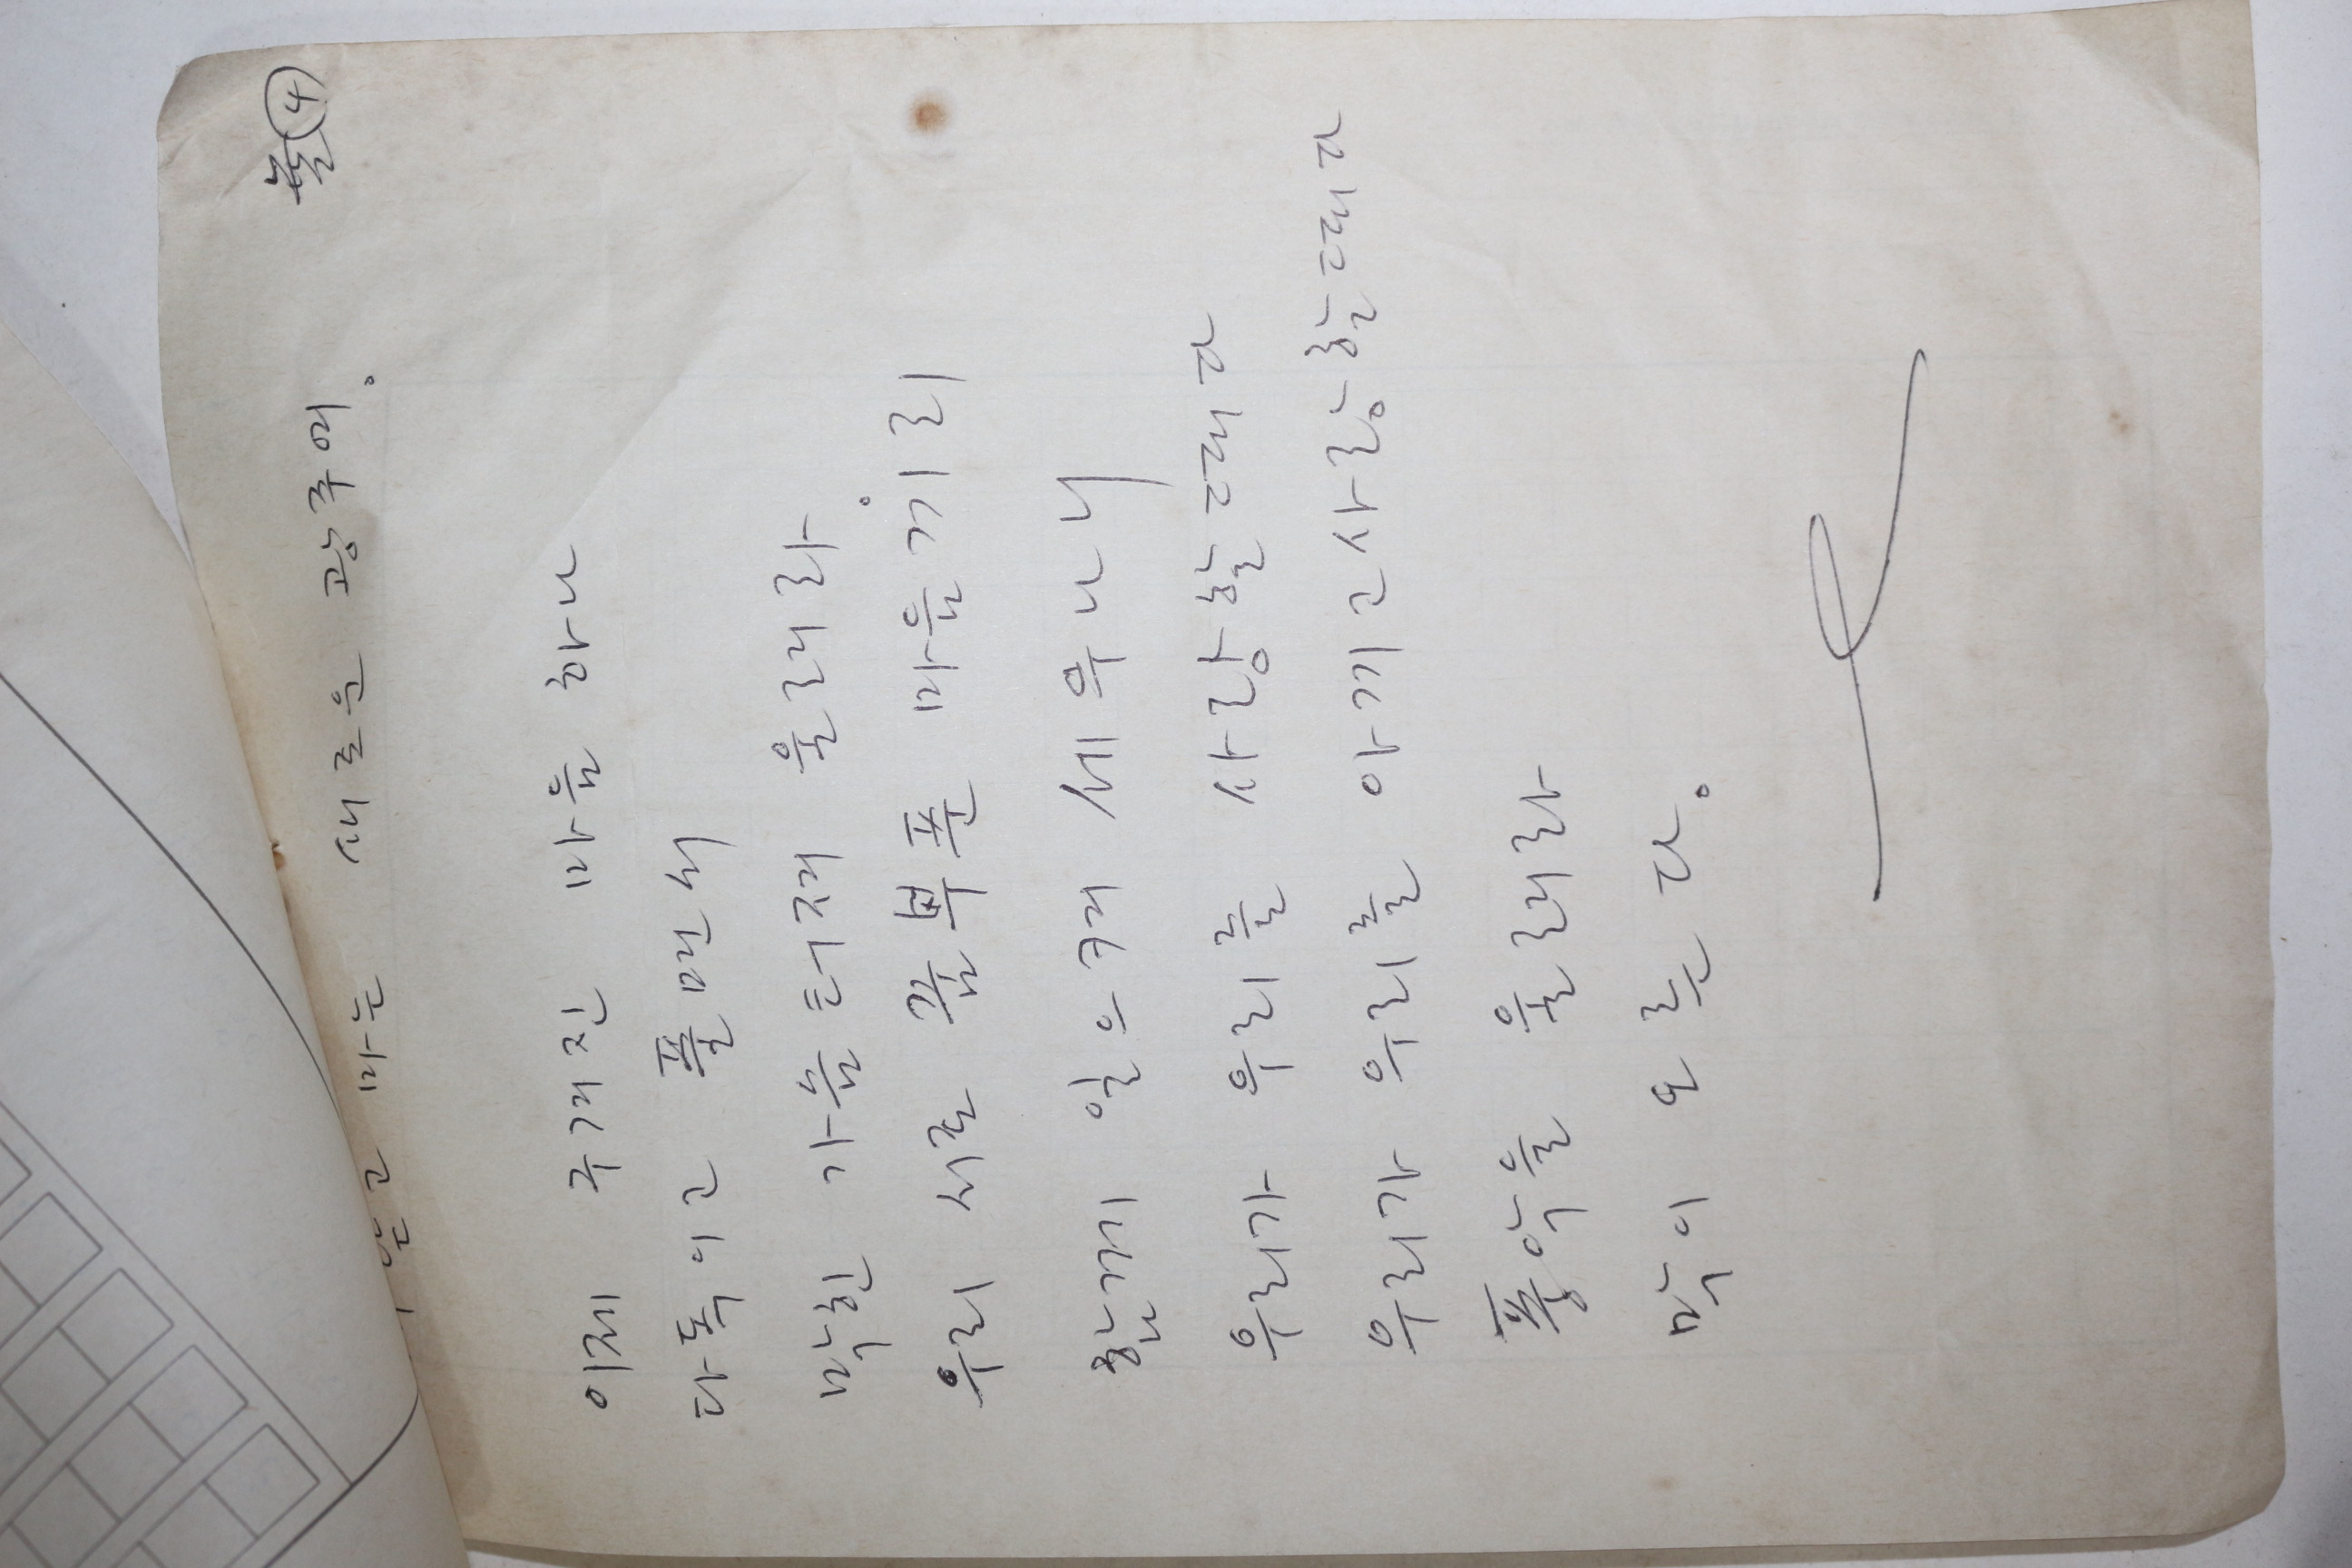 놀④
낳고 마는 새로운 광주여.
이제 구겨진 마음 하나
다독이고 풀면서
막힌 가슴 터져 울려라.
우리 서로 꿈부푼 마음끼리
함께 일으켜 세우나니
우리가 우리를 사랑할 때다
우리가 우리를 아끼고 사랑할 때다
풍악을 울려라
막이 오른다.